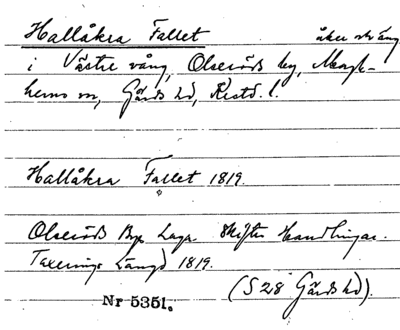 Hallåkra Fallet åker o. äng
i Västre vång, Olseröds by, Maglehems sn, Gärds hd, Kristd. l.
Hallåkra Fallet 1819.
Olseröds By Laga Skiftes Handlingar.
Taxerings Längd 1819.
(S 28 Gärds hd).
Nr 5351.